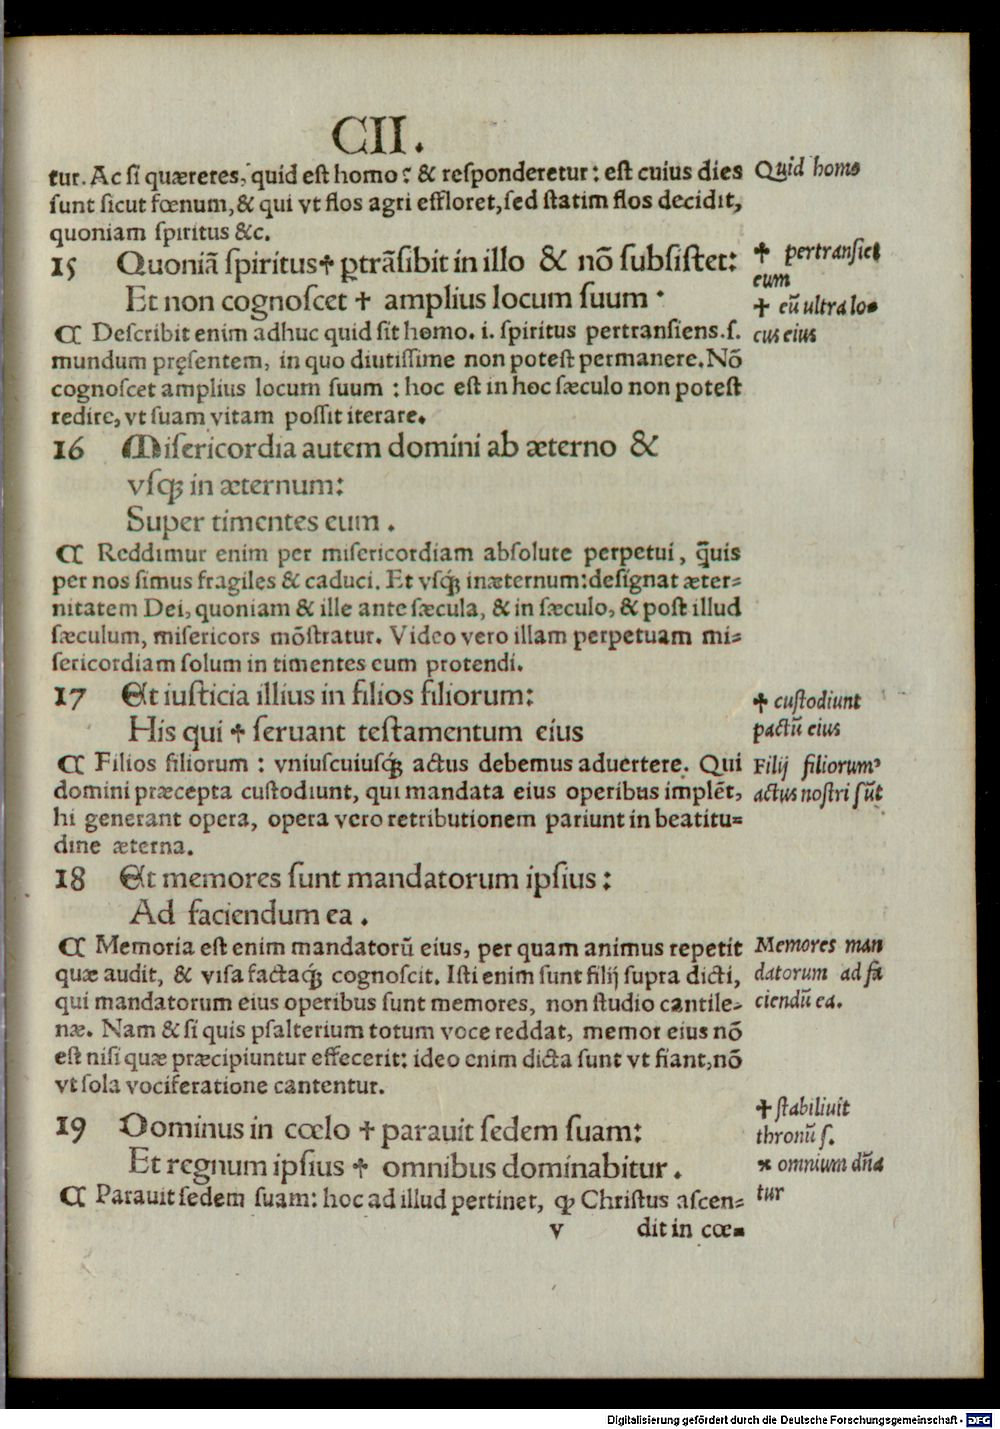 CII.
tur. Ac ſi quæreres, quid eſt homo? & reſponderetur: eſt cuius dies
ſunt ſicut fœnum, & qui vt flos agri effloret, ſed ſtatim flos decidit,
quoniam ſpiritus &c.
Quid homo
15 Quoniã ſpiritus ✝ ꝑtrãſibit in illo & nõ ſubſiſtet:
Et non cognoſcet ✝ amplius locum ſuum.
✝ pertranſiet
eum
✝ eũ ultra lo-
cus eius
¶ Deſcribit enim adhuc quid ſit homo. i. ſpiritus pertranſiens. ſ.
mundum pręſentem, in quo diutiſſime non poteſt permanere. Nõ
cognoſcet amplius locum ſuum : hoc eſt in hoc ſæculo non poteſt
redire, vt ſuam vitam poſſit iterare.
16 Miſericordia autem domini ab æterno &
vſqꝫ in æternum:
Super timentes eum.
¶ Reddimur enim per miſericordiam abſolute perpetui, q̃uis
per nos ſimus fragiles & caduci. Et vſqꝫ inæternum: deſignat æter-
nitatem Dei, quoniam & ille ante ſæcula, & in ſæculo, & poſt illud
ſæculum, miſericors mõſtratur. Video vero illam perpetuam mi-
ſericordiam ſolum in timentes eum protendi.
17 Et iuſticia illius in filios filiorum:
His qui ✝ ſeruant teſtamentum eius
✝ cuſtodiunt
pactũ eius
¶ Filios filiorum : vniuſcuiuſqꝫ actus debemus aduertere. Qui
domini præcepta cuſtodiunt, qui mandata eius operibus implẽt,
hi generant opera, opera vero retributionem pariunt in beatitu-
dine æterna.
Filij filiorum
actus noſtri sũt
18 Et memores ſunt mandatorum ipſius :
Ad faciendum ea.
¶ Memoria eſt enim mandatorũ eius, per quam animus repetit
quæ audit, & viſa factaqꝫ cognoſcit. Iſti enim ſunt filij ſupra dicti,
qui mandatorum eius operibus ſunt memores, non ſtudio cantile-
næ. Nam & ſi quis pſalterium totum voce reddat, memor eius nõ
eſt niſi quæ præcipiuntur effecerit: ideo enim dicta ſunt vt fiant, nõ
vt ſola vociferatione cantentur.
Memores man
datorum ad fa
ciendũ ea.
19 Dominus in cœlo ✝ parauit ſedem ſuam:
Et regnum ipſius ✝ omnibus dominabitur.
✝ ſtabiliuit
thronũ ſ.
omnium dña
tur
¶ Parauit ſedem ſuam: hoc ad illud pertinet, ꝙ Chriſtus aſcen-
v dit in cœ-
Digitalisierung gefördert durch die Deutsche Forschungsgemeinschaft - DFG